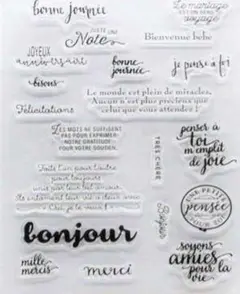 bonne journée
Le mariage
est un beau
voyage
juste une
Note
Bienvenue bébé
JOYEUX
anniversaire
bonne
journée
je pense à toi
bisous
Le monde est plein de miracles,
Aucun n'est plus précieux que
celui que vous attendez !
Félicitations
LES MOTS NE SUFFISENT
PAS POUR EXPRIMER
NOTRE GRATITUDE
POUR VOTRE SOUTIEN.
TRÈS CHÈRE
penser à
toi
m'emplit
de joie
pour toujours
UNE PETITE
pensée
bonjour
soyons
amies
pour la
vie
mille
mercis
merci